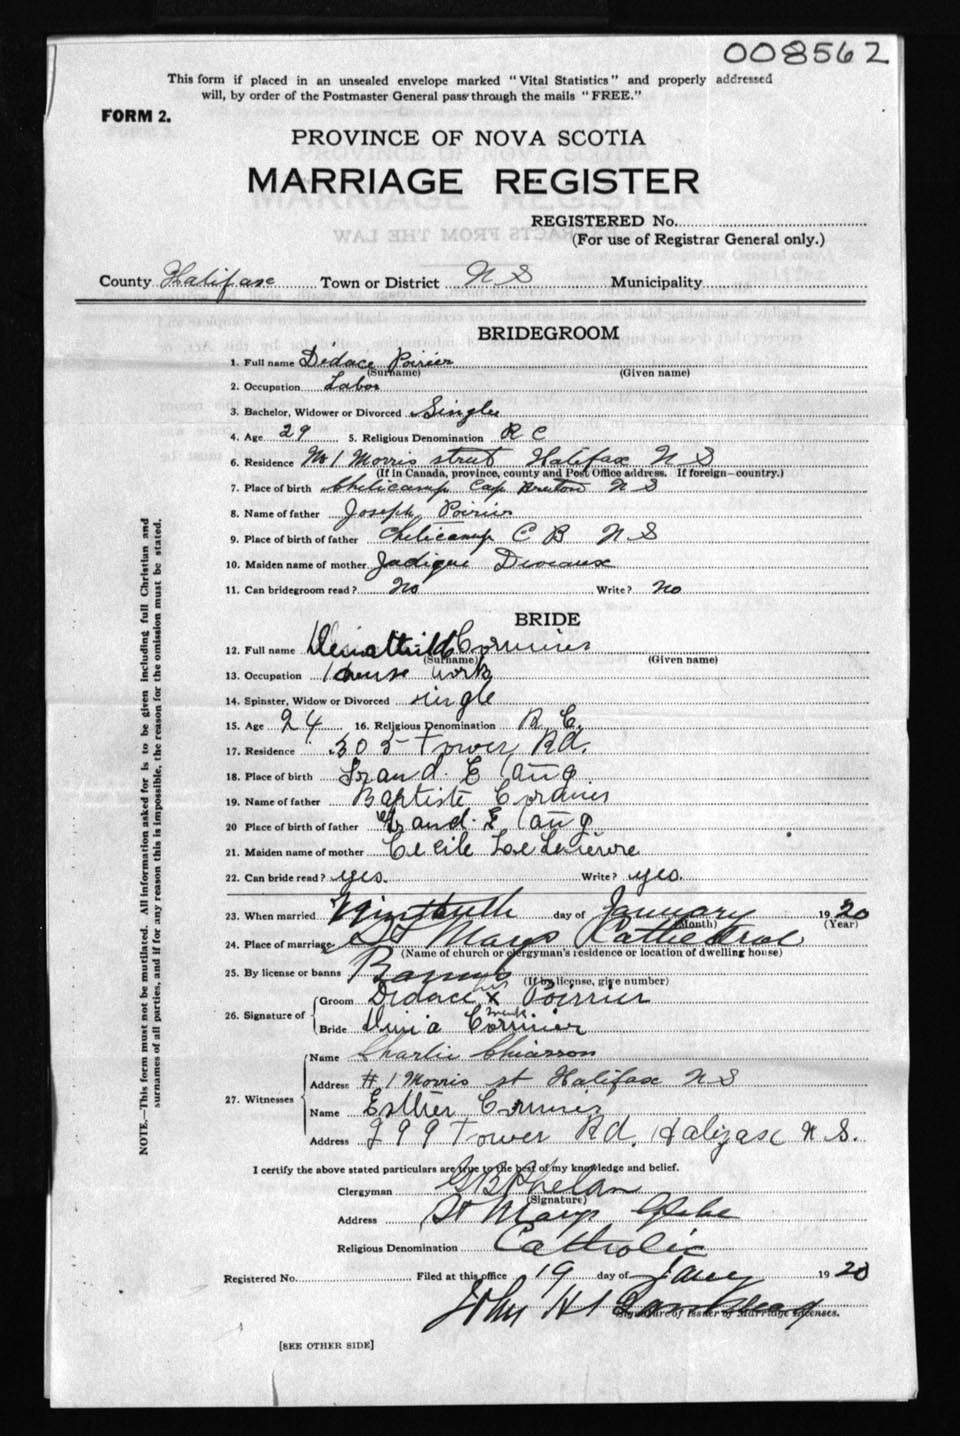 008562
This form if placed in an unsealed envelope marked "Vital Statistics" and properly addressed
will, by order of the Postmaster General pass through the mails "FREE."
FORM 2.
PROVINCE OF NOVA SCOTIA
MARRIAGE REGISTER
REGISTERED No.
(For use of Registrar General only.)
County Halifax Town or District N S Municipality
BRIDEGROOM
1. Full name Didace Poirier
(Surname) (Given name)
2. Occupation Labor
3. Bachelor, Widower or Divorced Single
4. Age 29 5. Religious Denomination R C
6. Residence No 1 Morris street Halifax N S
(If in Canada, province, county and Post Office address. If foreign—country.)
7. Place of birth Cheticamp Cap Breton N S
8. Name of father Joseph Poirier
9. Place of birth of father Cheticamp C B N S
10. Maiden name of mother Deveaux
11. Can bridegroom read? No Write? No
BRIDE
12. Full name Cormier
(Surname) (Given name)
13. Occupation House work
14. Spinster, Widow or Divorced single
15. Age 24 16. Religious Denomination R C.
17. Residence 305 Tower Rd.
18. Place of birth Grand. E tang
19. Name of father Baptiste Cormier
20 Place of birth of father Grand. E tang
21. Maiden name of mother Cecile
22. Can bride read? yes. Write? yes
23. When married day of January 1920
(Month) (Year)
24. Place of marriage St Marys Cathedral
(Name of church or clergyman's residence or location of dwelling house)
25. By license or banns Banns
(If by license, give number)
26. Signature of
Groom Didace his x Poirrier
mark
Bride Dinia Cormier
27. Witnesses
Name Charlie Chiasson
Address # 1 Morris st Halifax N S
Name Esther Cormier
Address 299 Tower Rd. Halifax N. S.
I certify the above stated particulars are true to the best of my knowledge and belief.
Clergyman G B Phelan
(Signature)
Address St Marys Glebe
Religious Denomination Catholic
Registered No. Filed at this office 19 day of Jany 1920
John
Signature of Issuer of Marriage Licenses.
[SEE OTHER SIDE]
NOTE.—This form must not be mutilated. All information asked for is to be given including full Christian and
surnames of all parties, and if for any reason this is impossible, the reason for the omission must be stated.